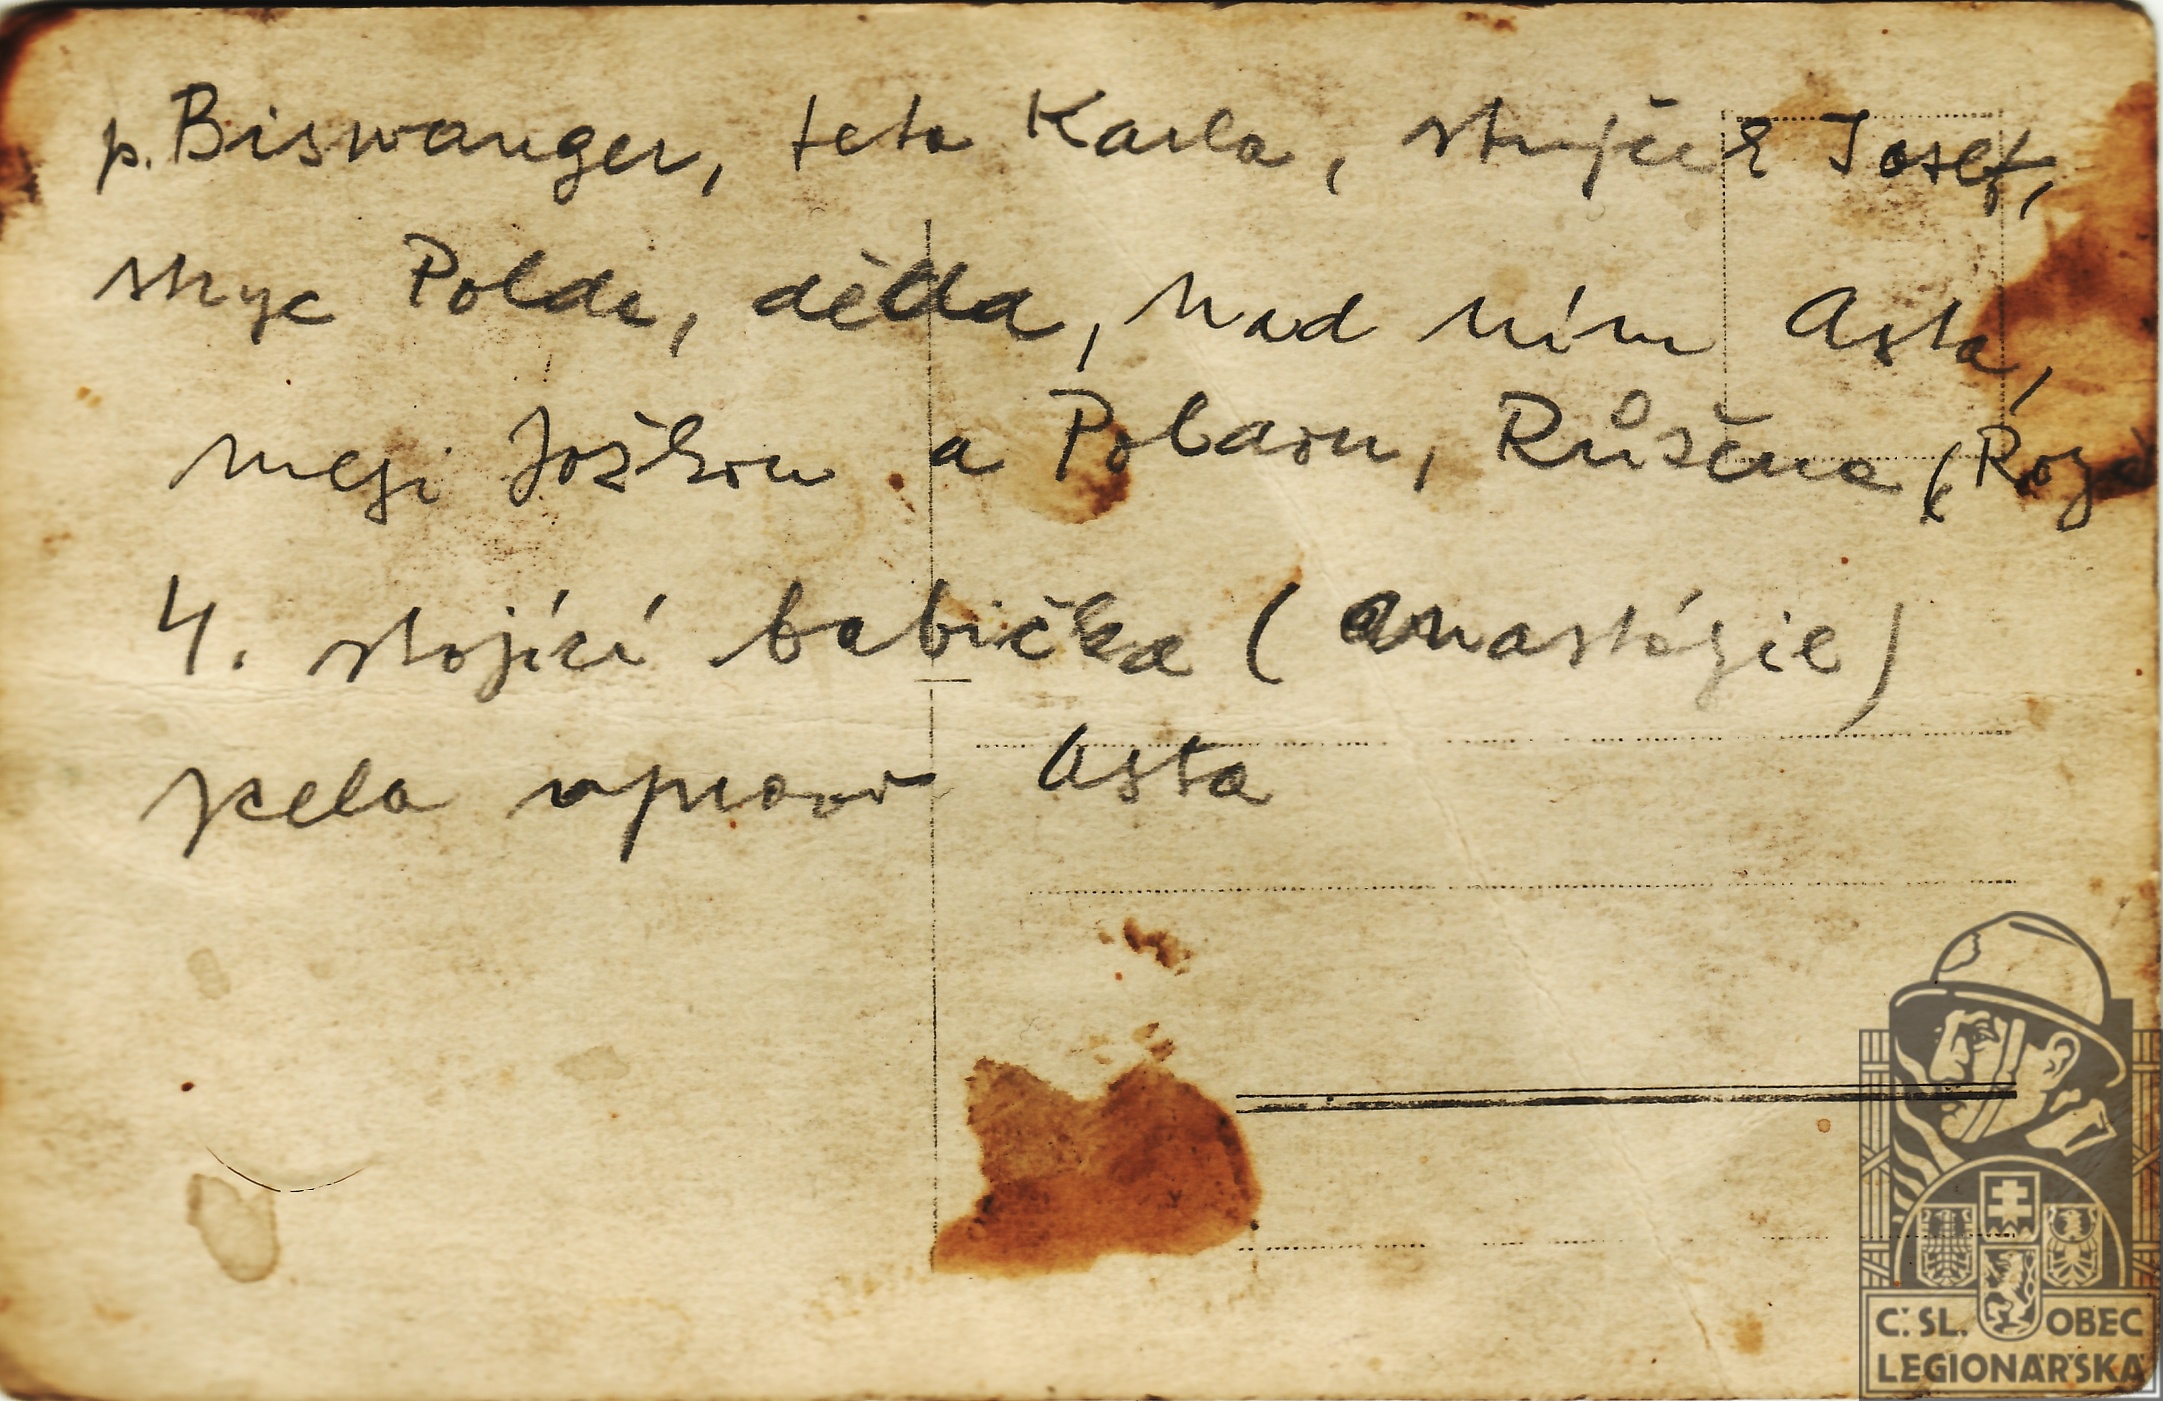 p. Biswanger, teta Karla, strýček Josef,
strýc Polda, děda, nad ním Asta,
mezi Joškou a Poldou, Růžena,
4. stojící babička (Anastázie)
zcela vpravo Asta
Č. SL. OBEC
LEGIONÁŘSKÁ